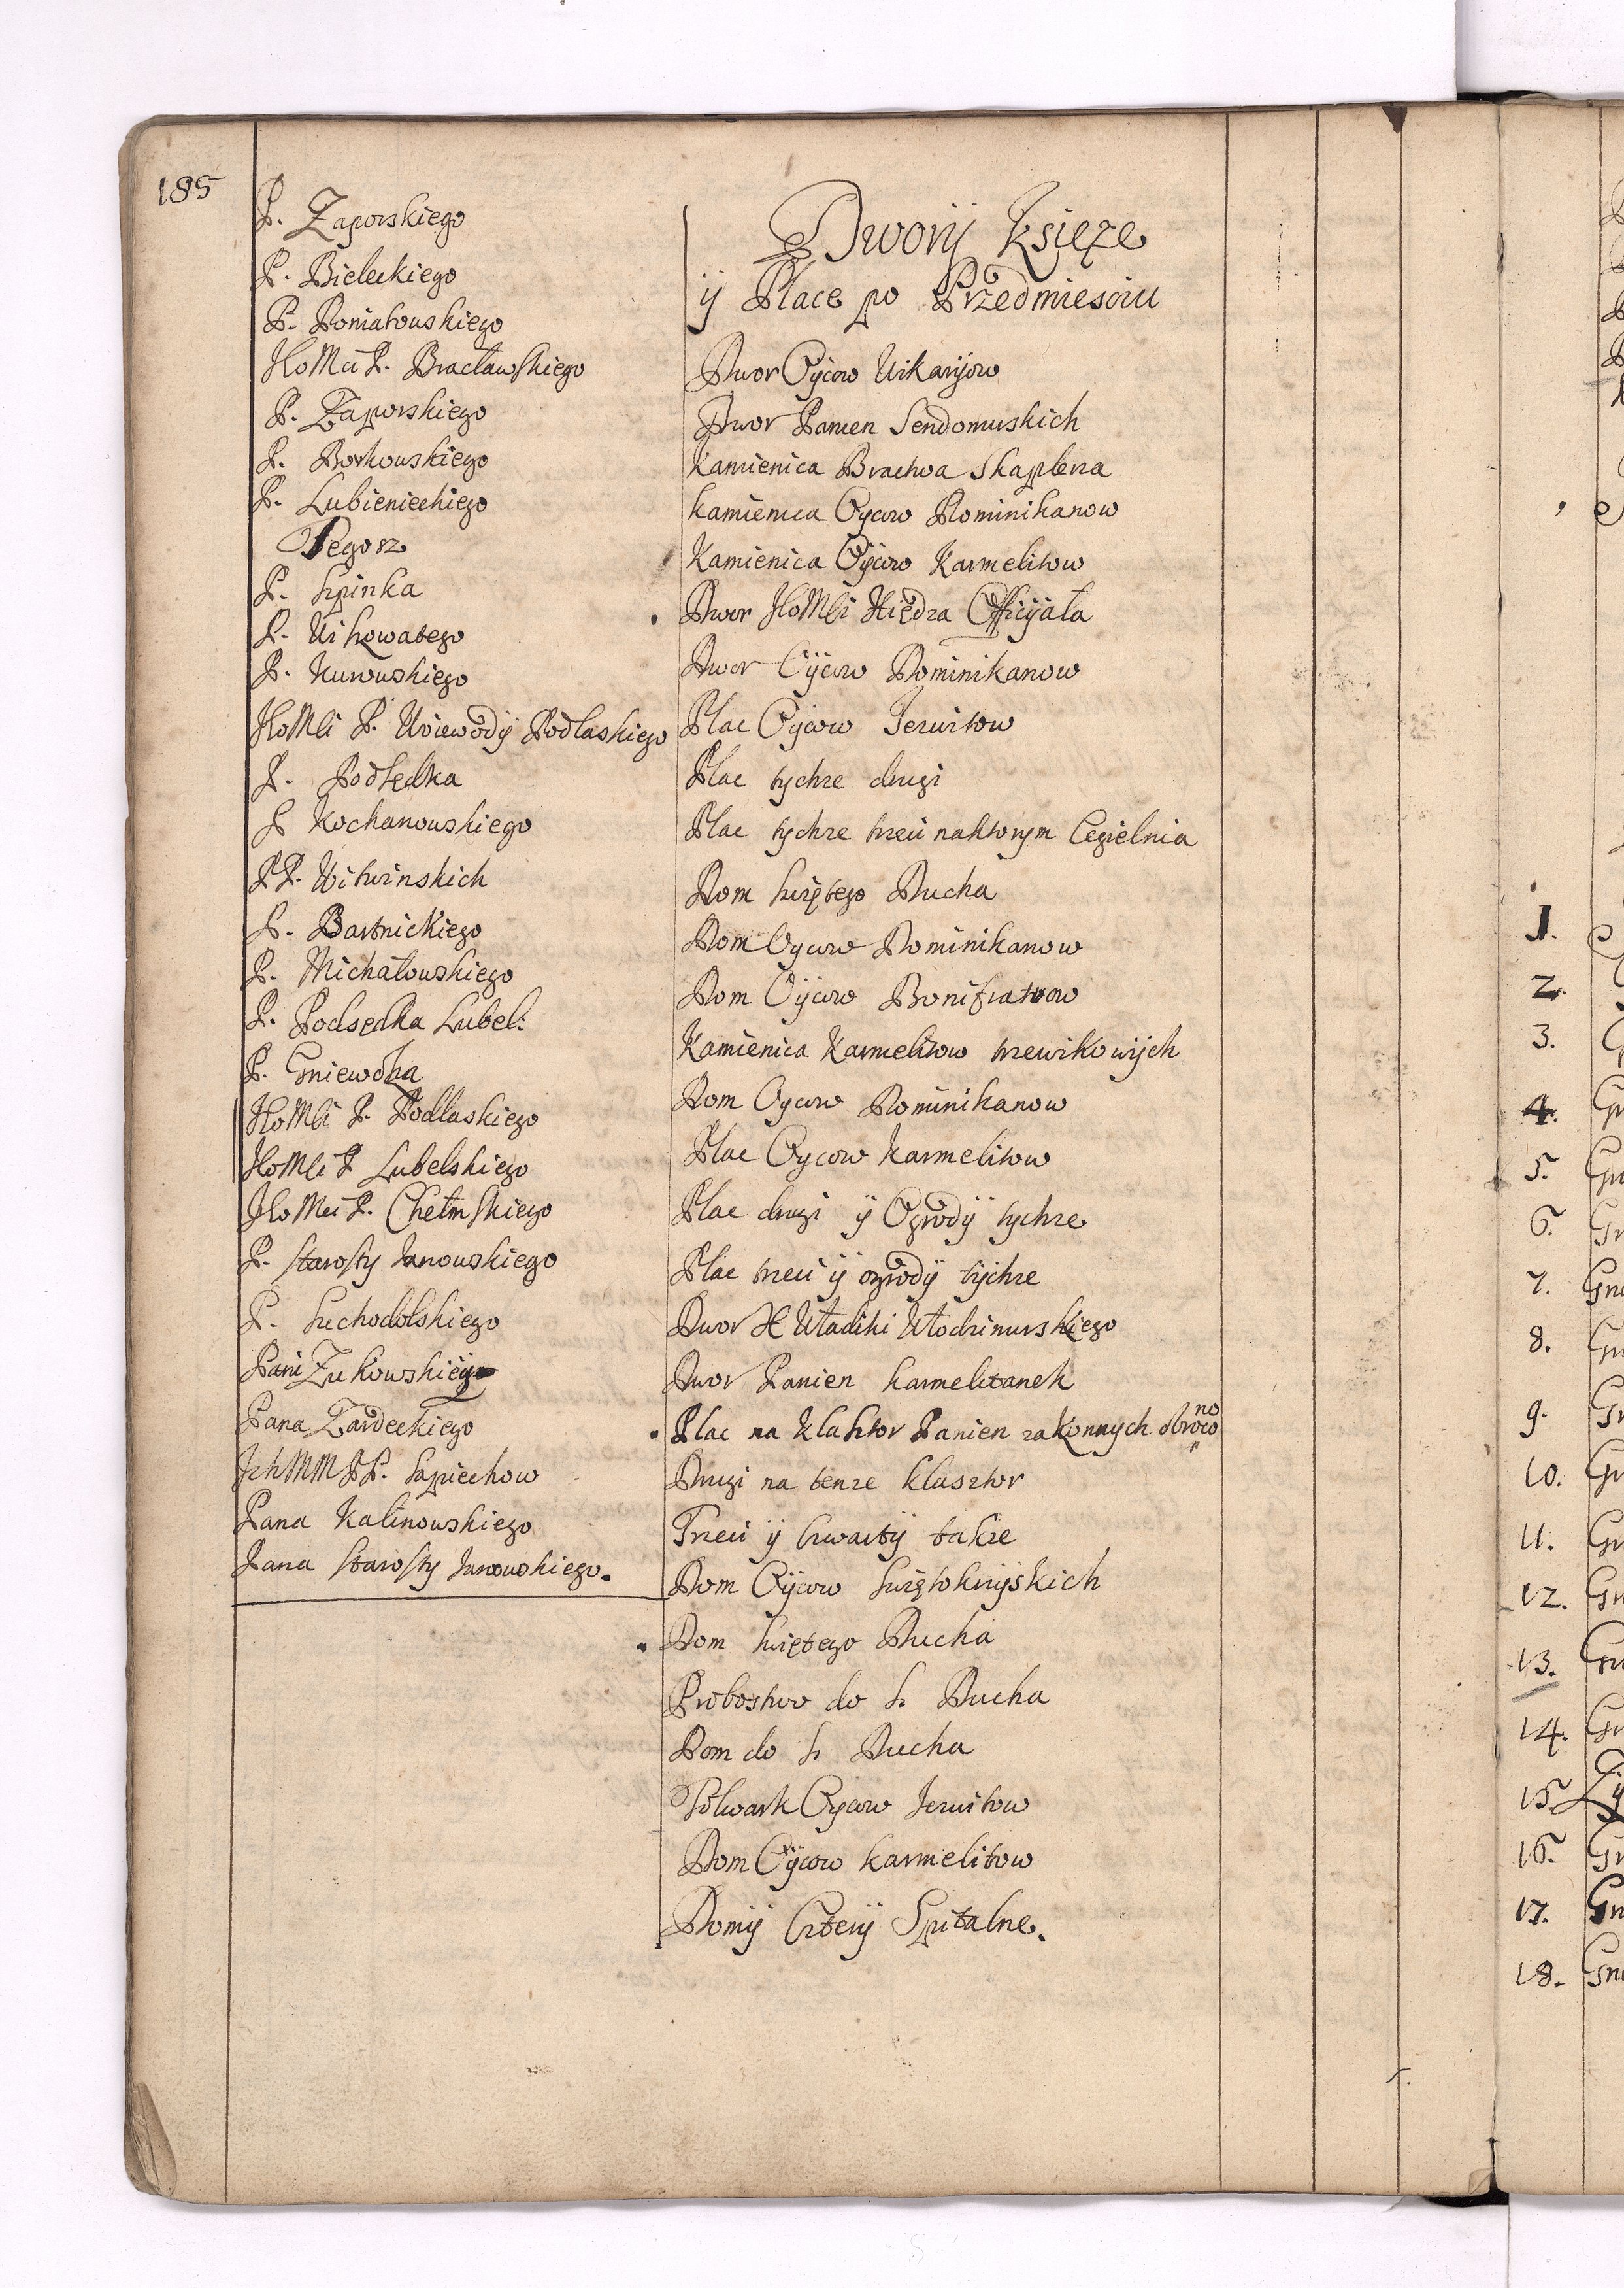 185
P. Zaporskiego
P. Bieleckiego
P. Poniatowskiego
JKoMci P. Bracławskiego
P. Zaporskiego
P. Borkowskiego
P. Lubienieckiego
Tegosz
P. Szpinka
P. Wi
P. Kurowskiego
JKoMści P. Woiewody Podlaskiego
P. Podsędka
P Kochanowskiego
PP. Witwinskich
P. Bartnickiego
P. Michałowskiego
P. Podsędka Lubel:
P. Gniewosza
JKoMści P. Podlaskiego
JKoMści P Lubelskiego
JKoMci P. Chełmskiego
P. Starosty Janowskiego
P. Suchodolskiego
Pani Zukowskiey
Pana Zardeckiego
JchMM PP. Sapiechow
Pana Kalinowskiego
Pana Starosty Janowskiego.
Dworÿ Księze
ÿ Place po Przedmiesciu
Dwor Oÿcow Wikarÿow
Dwor Panien Sendomirskich
Kamienica Bractwa Skaplerza
Kamienica Oycow Dominikanow
Kamienica Oÿcow Karmelitow
Dwor JKoMści Xiędza Officÿała
Dwor Oÿcow Dominikanow
Plac Oÿcow Jezuitow
Plac tychze drugi
Plac tychze trzeci naktorym Cegielnia
Dom Swiętego Ducha
Dom Oycow Dominikanow
Dom Oÿcow Bonifratrow
Kamienica Karmelitow trzewikowÿch
Dom Oycow Dominikanow
Plac Oycow Karmelitow
Plac drugi ÿ Ogrodÿ tychze
Plac trzeci ÿ ogrodÿ tÿchze
Dwor X Władiki Włodzimirskiego
Dwor Panien Karmelitanek
Plac na Klasztor Panien zakonnych obroco
no
Drugi na tenze klasztor
Trzeci ÿ Czwartÿ takze
Dom Oÿcow Swiętokrzÿskich
Dom Swiętego Ducha
Probostwo do S. Ducha
Dom do S. Ducha
Folwark Oycow Jezuitow
Dom Oÿcow Karmelitow
Domÿ Czterÿ Szpitalne.
1.
2.
3.
4.
5.
6.
7.
8.
9.
10.
11.
12.
13.
14.
15.
16.
17.
18.